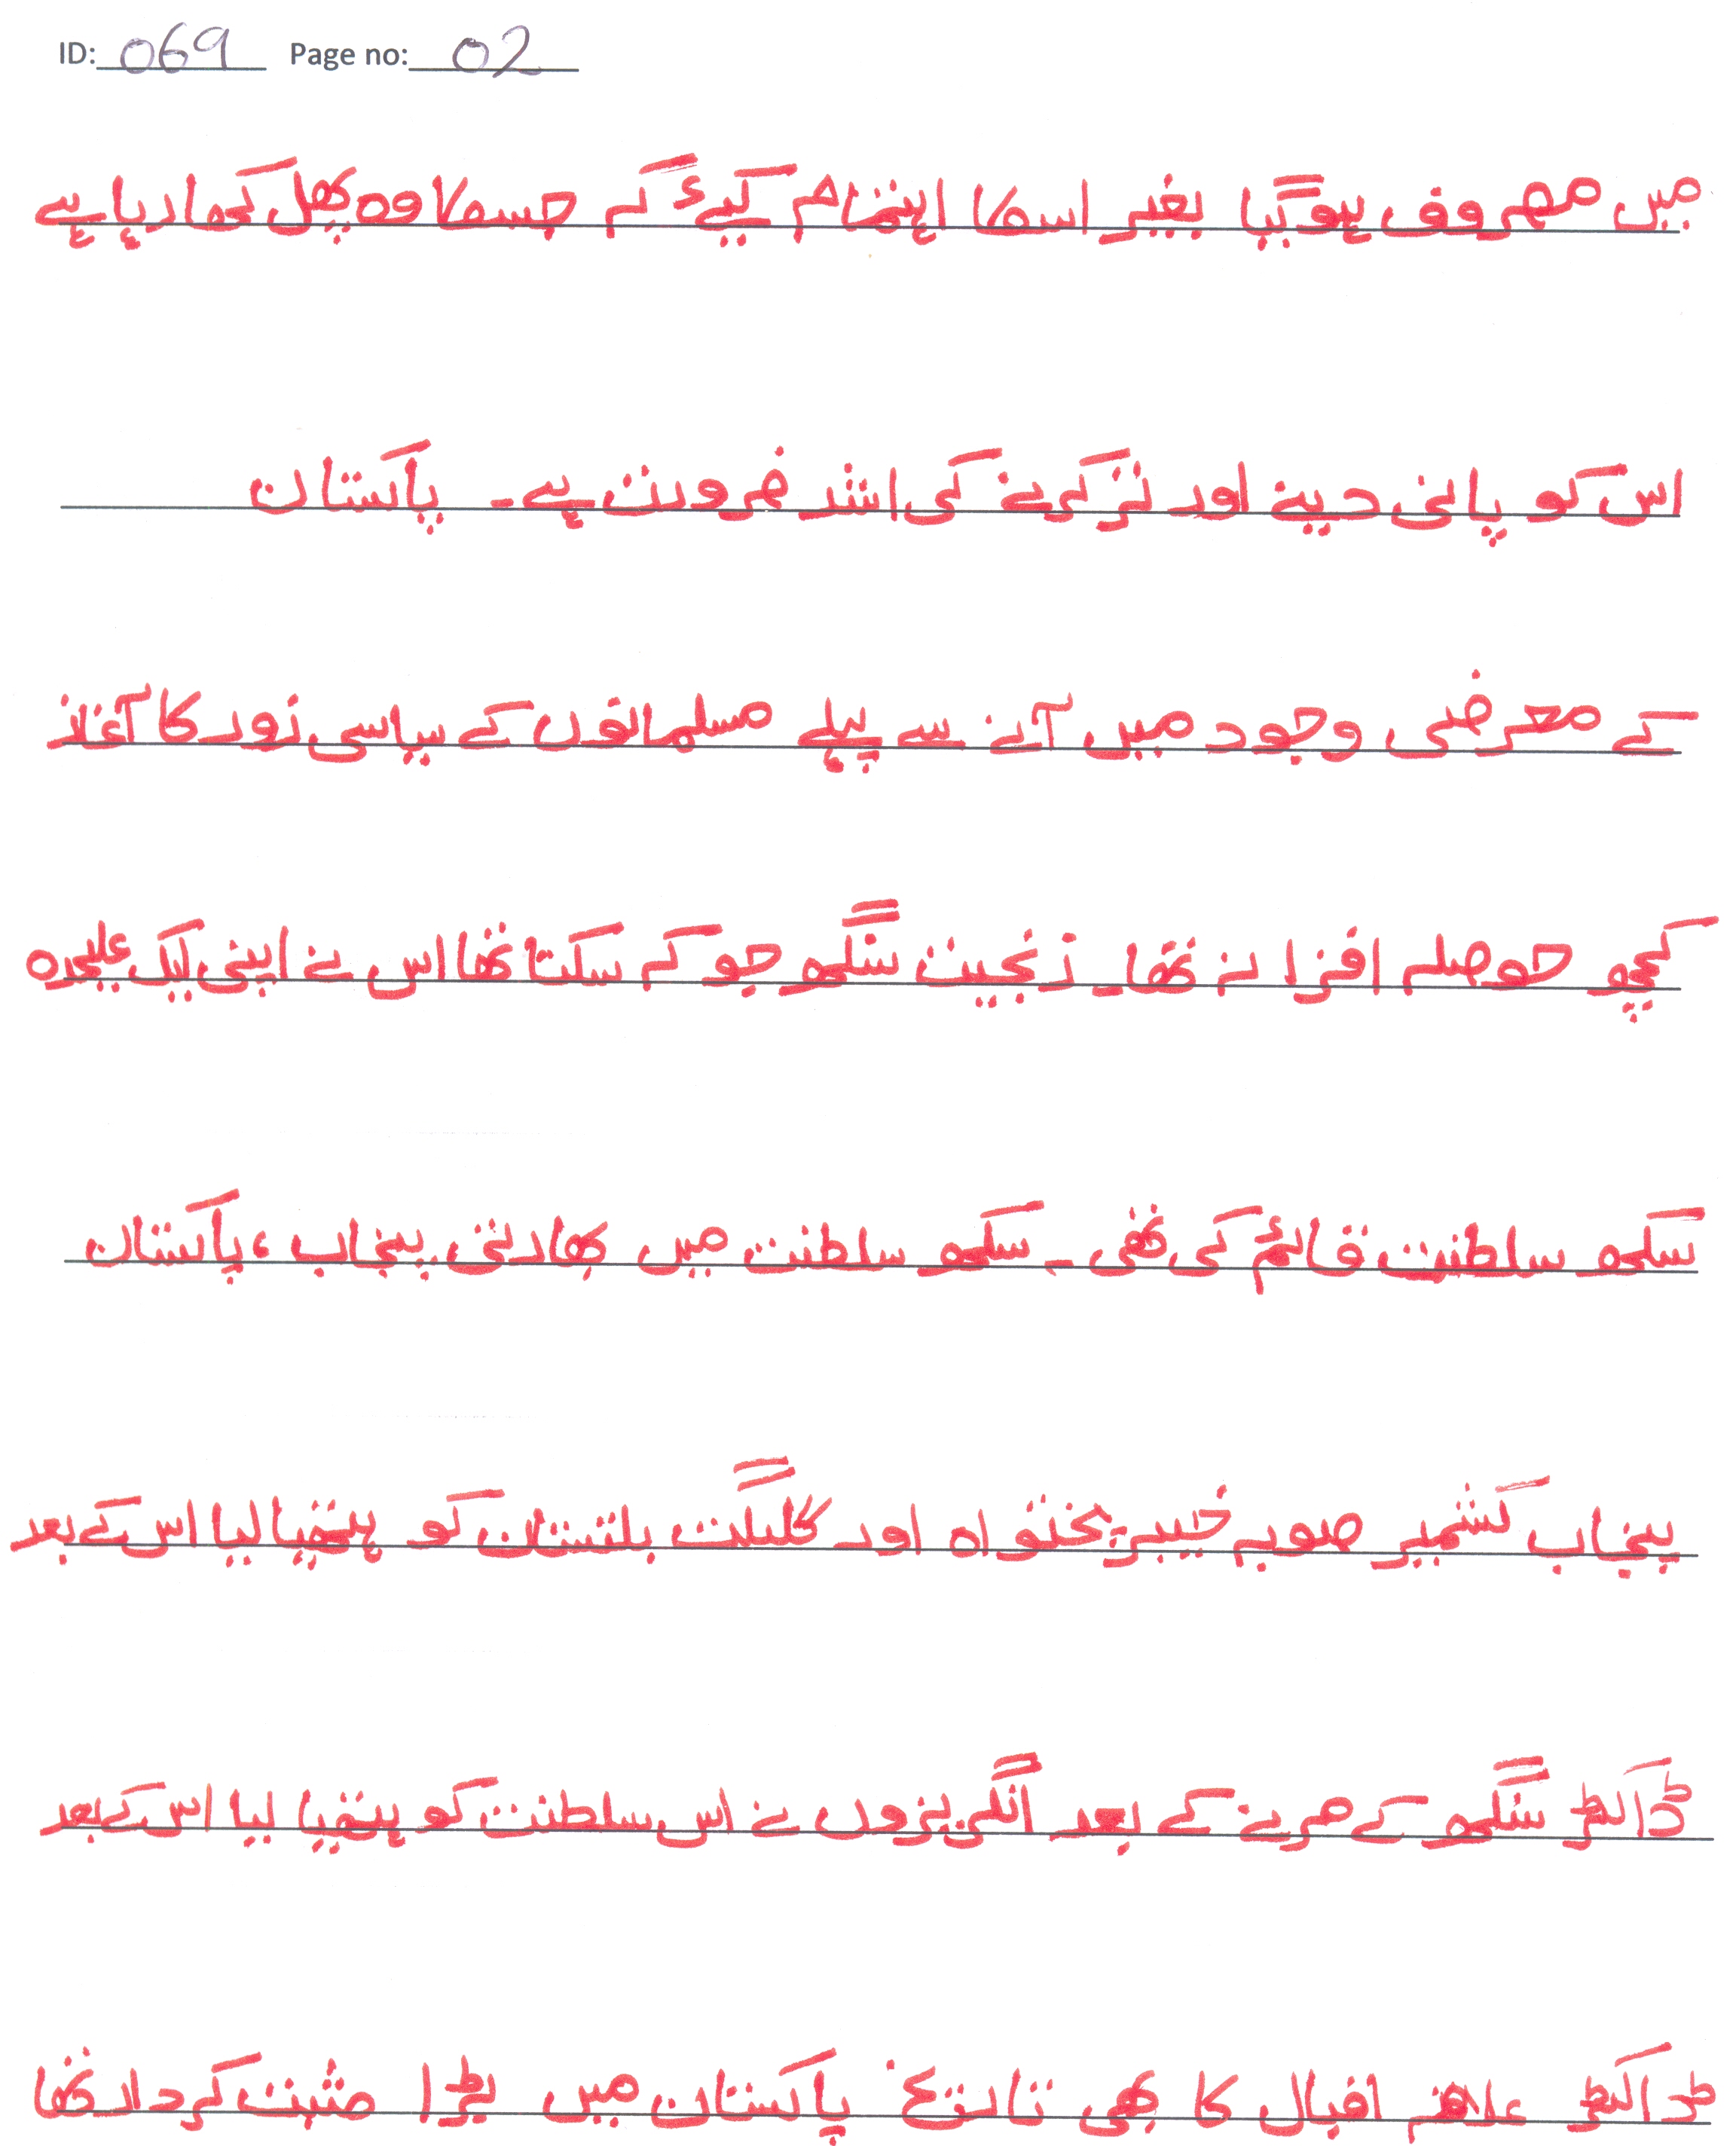 ID: 069 Page no: 02
میں مصروف ہوگیا بغیر اسکا اہتمام کیئے کہ جسکا وہ پھل کھا رہا ہے
اس کو پانی دینے اور تر کرنے کی اشد ضرورت ہے۔ پاکستان
کے معرضی وجود میں آنے سے پہلے مسلمانوں کے سیاسی زور کا آغاز
کچھ حوصلہ افزا نہ تھا۔ رنجیت سنگھ جو کہ سکتا تھا اس نے اپنی ایک علیحدہ
سکھ سلطنت قائم کی تھی۔ سکھ سلطنت میں بھارتی پنجاب، پاکستان
پنجاب کشمیر صوبہ خیبر پختواہ اور گلگت بلتستان کو ہتھیا لیا اس کے بعد
ڈاکٹر سنگھ کے مرنے کے بعد انگریزوں نے اس سلطنت کو ہتھیا لیا اس کے بعد
ڈاکٹر علامہ اقبال کا بھی تاریخ پاکستان میں بڑا مثبت کردار تھا